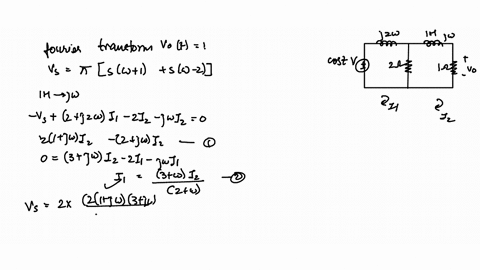 fourier transform V₀(t)=1
Vs = π [ s(ω+1) + s(ω-2)]
1H → jω
-Vs + (2+j2ω) I₁ - 2I₂ - jωI₂ = 0
2(1+jω)I₂ -(2+jω) I₂ — ①
0 = (3+jω)I₂ - 2I₁ - jωI₁
I₁ = (3+ω) I₂ / (2+ω) — ②
Vs = 2x (2(1+jω)(3+jω)
j2ω 1H jω
cost V 2Ω 1Ω + V₀ -
I₁ I₂